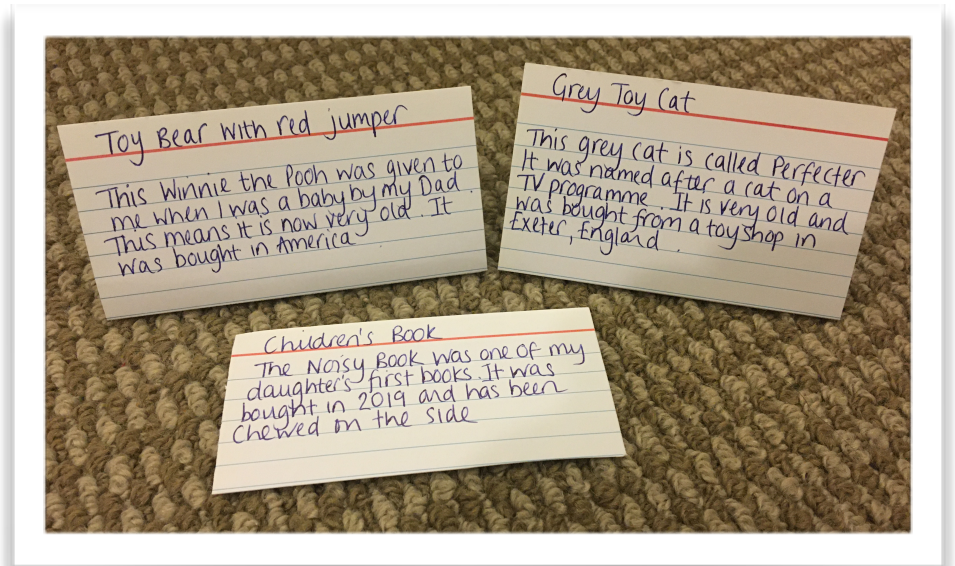 Toy Bear with red jumper
This Winnie the Pooh was given to
me when I was a baby by my Dad.
This means it is now very old. It
was bought in America
Grey Toy Cat
This grey cat is called Perfecter
It was named after a cat on a
TV programme. It is very old and
was bought from a toyshop in
Exeter, England.
Children's Book
The Noisy Book was one of my
daughter's first books. It was
bought in 2019 and has been
chewed on the side